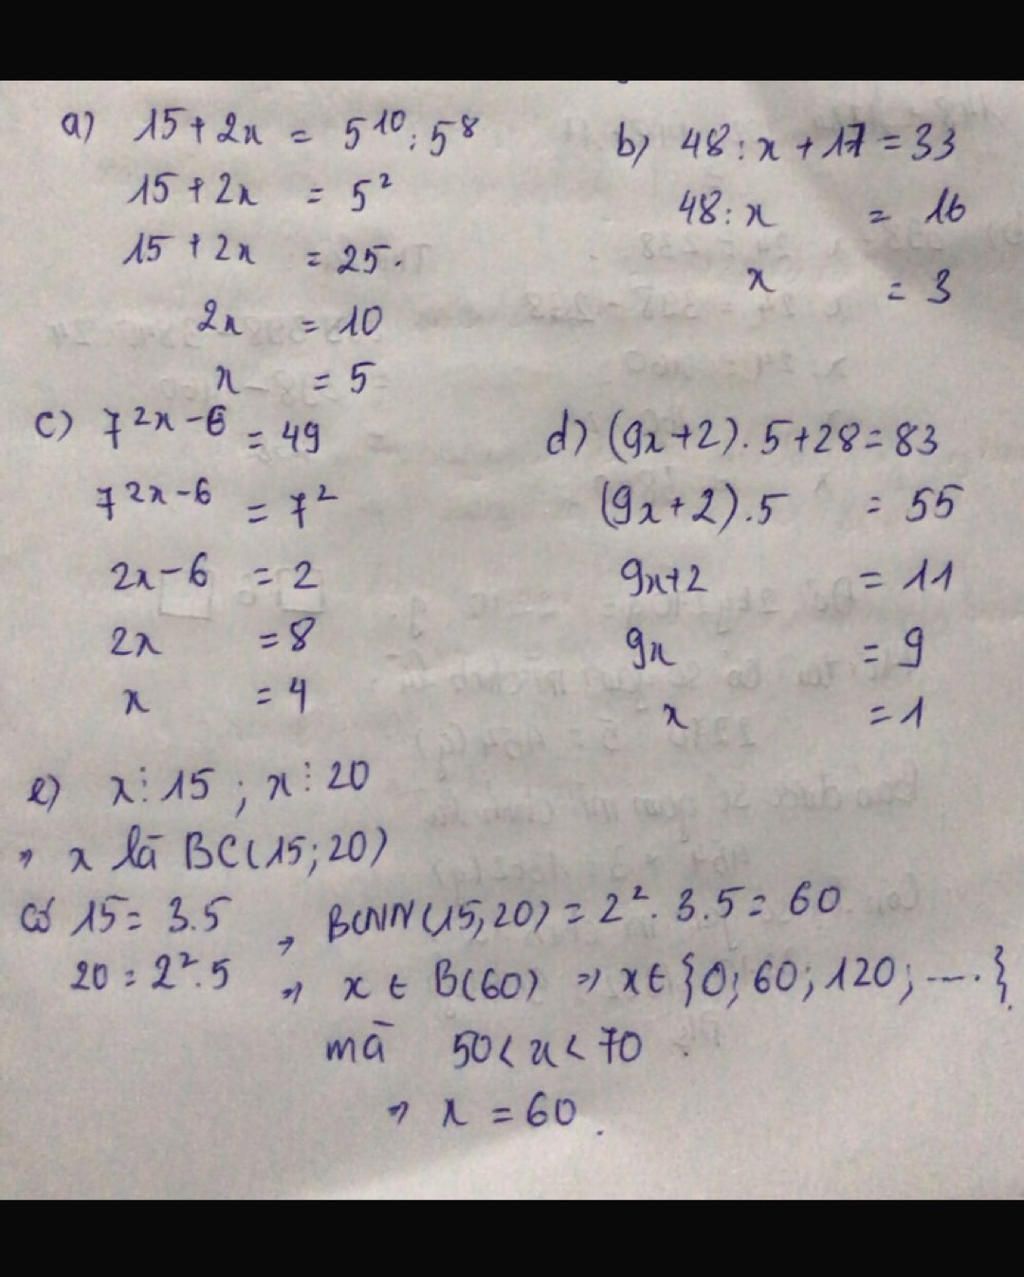 a) 15 + 2x = 5¹⁰ : 5⁸
15 + 2x = 5²
15 + 2x = 25.
2x = 10
x = 5
b) 48 : x + 17 = 33
48 : x = 16
x = 3
c) 7²ˣ⁻⁶ = 49
7²ˣ⁻⁶ = 7²
2x - 6 = 2
2x = 8
x = 4
d) (9x + 2) . 5 + 28 = 83
(9x + 2) . 5 = 55
9x + 2 = 11
9x = 9
x = 1
e) x ⋮ 15 ; x ⋮ 20
⇒ x là BC(15; 20)
Có 15 = 3.5
20 = 2².5
⇒ BCNN(15, 20) = 2² . 3.5 = 60
⇒ x ∈ B(60) ⇒ x ∈ {0; 60; 120; ....}
mà 50 < x < 70
⇒ x = 60.